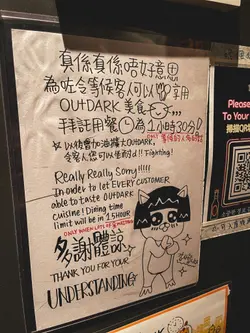 真係真係唔好意思
為咗令等候客人可以享用
OUTDARK 美食
拜託用餐 為1小時30分!
ONLY 等候的人好多時
※ 以後會加油擴大OUTDARK,
令客人您可以坐耐d!! Fighting!
Really Really Sorry!!!!!
In order to let EVERY CUSTOMER
able to taste OUTDARK
cuisine! Dining time
limit will be in 1.5HOUR
ONLY WHEN LOTS OF WAITING
多謝體諒
THANK YOU FOR YOUR
UNDERSTANDING
Please
To Your
掃描QR